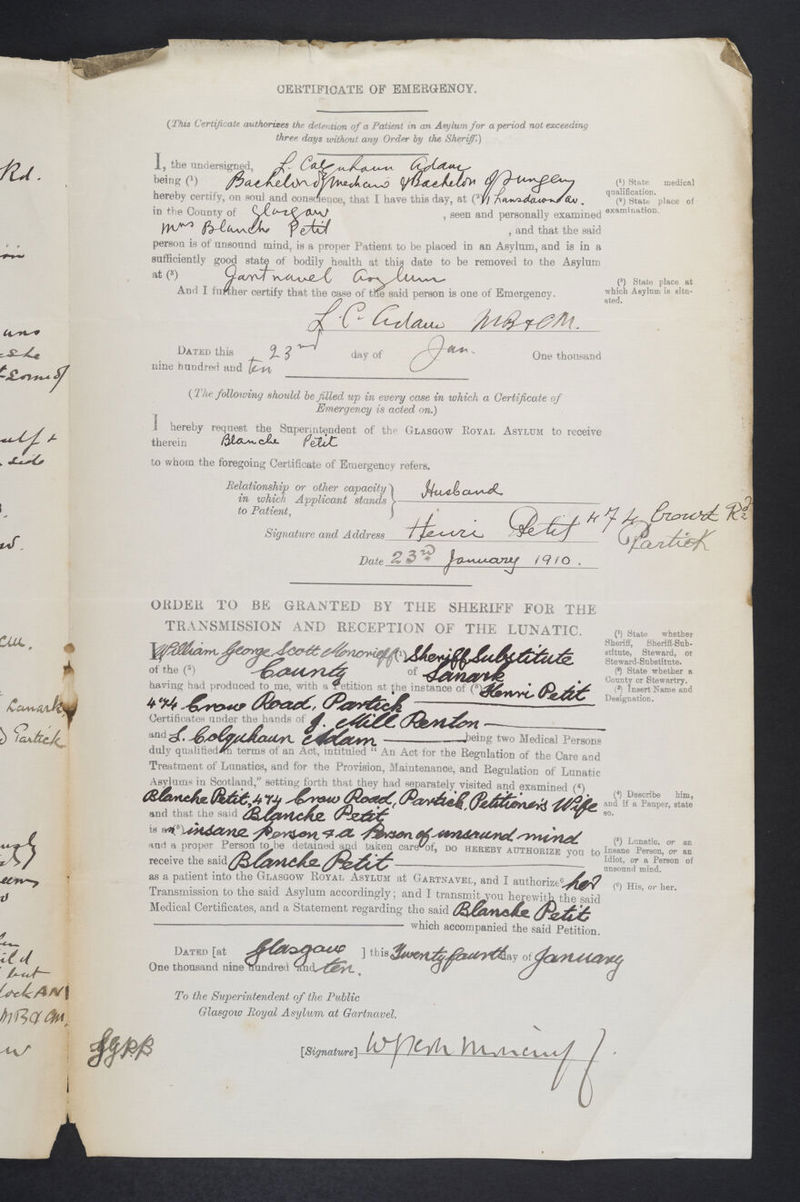 CERTIFICATE OF EMERGENCY.
(This Certificate authorizes the detention of a Patient in an Asylum for a period not exceeding
three days without any Order by the Sheriff.)
I, the undersigned, L. Colquhoun Adam
being (1) Bachelor of Medicine & Bachelor of Surgery
(1) State medical
qualification.
hereby certify, on soul and conscience, that I have this day, at (2) Lansdowne Av.
(2) State place of
examination.
in the County of Glasgow, seen and personally examined
Mrs Blanche Petit, and that the said
person is of unsound mind, is a proper Patient to be placed in an Asylum, and is in a
sufficiently good state of bodily health at this date to be removed to the Asylum
at (3) Gartnavel Asylum
(3) State place at
which Asylum is situ-
ated.
And I further certify that the case of the said person is one of Emergency.
L. C. Adam MB & CM.
DATED this 23rd day of Jan. One thousand
nine hundred and ten
(The following should be filled up in every case in which a Certificate of
Emergency is acted on.)
I hereby request the Superintendent of the GLASGOW ROYAL ASYLUM to receive
therein Blanche Petit
to whom the foregoing Certificate of Emergency refers.
Relationship or other capacity
in which Applicant stands
to Patient, Husband
Signature and Address Henri Petit 474 Crow Rd
Partick
Date 23rd January 1910.
ORDER TO BE GRANTED BY THE SHERIFF FOR THE
TRANSMISSION AND RECEPTION OF THE LUNATIC.
I William George Scott Moncrieff (1) Sheriff Substitute
(1) State whether
Sheriff, Sheriff-Sub-
stitute, Steward, or
Steward-Substitute.
of the (2) County of Lanark
(2) State whether a
County or Stewartry.
having had produced to me, with a Petition at the instance of (3) Henri Petit
(3) Insert Name and
Designation.
474 Crow Road, Partick
Certificates under the hands of J. Mill Renton
and L. Colquhoun Adam being two Medical Persons
duly qualified in terms of an Act, intituled "An Act for the Regulation of the Care and
Treatment of Lunatics, and for the Provision, Maintenance, and Regulation of Lunatic
Asylums in Scotland," setting forth that they had separately visited and examined (4)
Blanche Petit, 474 Crow Road, Partick, Petitioner's Wife
(4) Describe him,
and if a Pauper, state
so.
and that the said Blanche Petit
is an (5) insane Person & a Person of unsound mind
(5) Lunatic, or an
Insane Person, or an
Idiot, or a Person of
unsound mind.
and a proper Person to be detained and taken care of, DO HEREBY AUTHORIZE you to
receive the said Blanche Petit
as a patient into the GLASGOW ROYAL ASYLUM at GARTNAVEL, and I authorize (6) her
(6) His, or her.
Transmission to the said Asylum accordingly; and I transmit you herewith the said
Medical Certificates, and a Statement regarding the said Blanche Petit
which accompanied the said Petition.
DATED [at Glasgow ] this Twenty fourth day of January
One thousand nine hundred and ten.
To the Superintendent of the Public
Glasgow Royal Asylum at Gartnavel.
[Signature]